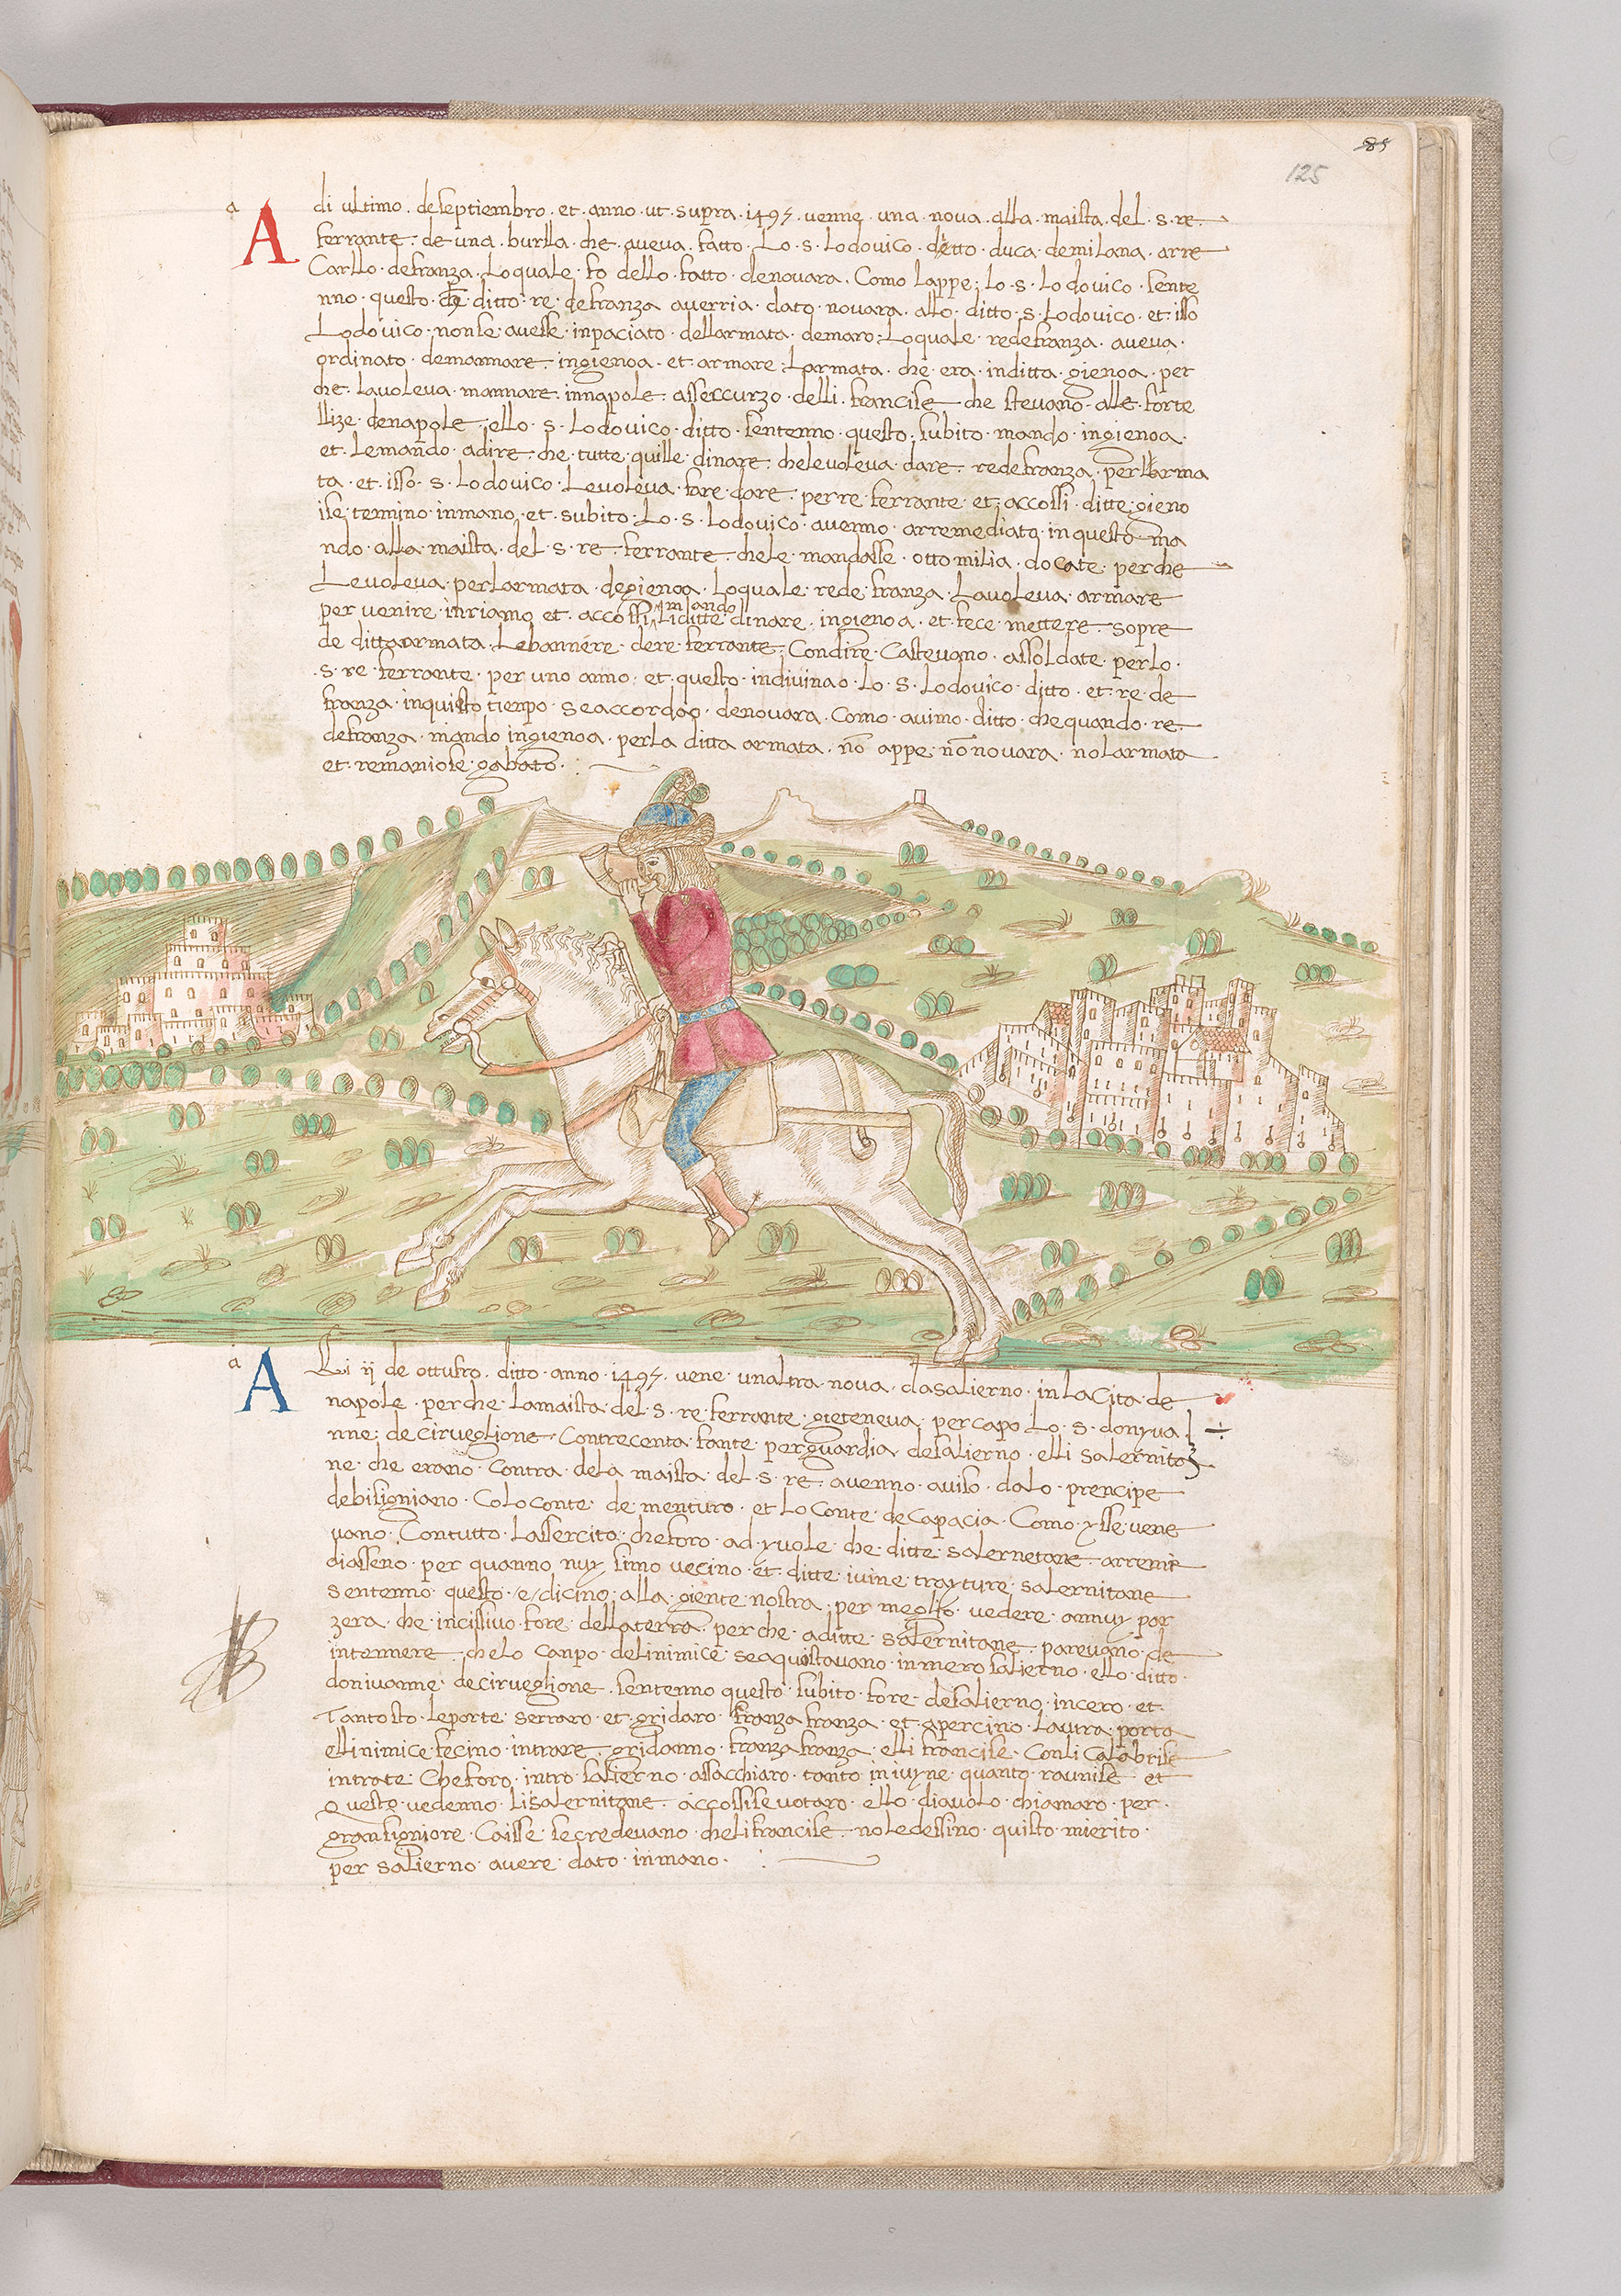 85
125
a
A di ultimo · de septiembro · et · anno · ut · supra · 1495 · venne · una · nova · alla · maista · del · s · re ·
ferrante · de una · burlla · che · aveva · fatto · Lo · s · Lodovico · ditto · duca · de milana · arre
Carllo · de franza · Lo quale · fo dello · fatto · de novara · Como Lappe · Lo · s · Lodovico · sente
nno · questo · che ditto · re · de franza averria · dato · novara · allo · ditto · s · Lodovico · et · isso
Lodovico · non se avesse · inpaciato · dell armata · de maro · Lo quale · re de franza · aveva ·
ordinato · de mannare · in gienoa · et · armare · L armata · che · era · in ditta · gienoa · per
che · la voleva · mannare · in napole · asseccurzo · delli · francise · che stevano · alle · forte
llize · de napole · ello · s · Lodovico · ditto · sentenno · questo · subito · mando · in gienoa ·
et · Le mando · a dire · che · tutte · quille · dinare · che le voleva · dare · re de franza · per L arma
ta · et · isso · s · Lodovico · Le voleva · fare · dare · per re · ferrante · et · accossi · ditte · gieno
ise · termino · in mano · et · subito · Lo · s · Lodovico · avenno · arremediato · in questo ma
ndo · alla maista · del · s · re · ferrante · che le · mandasse · otto milia · docate · perche
Le voleva · per L armata · de gienoa · Lo quale · re de · franza · La voleva · armare
per venire · in riamo · et · accossi mando Li ditte dinare · in gienoa · et · fece · mettere · sopre
de ditta armata · Le bannere · de re · ferrante · Con dire · Ca stevano · assoldate · per lo ·
s · re · ferrante · per uno anno · et · questo · indivinao · Lo · s · Lodovico · ditto · et · re · de
franza · in quisto tienpo · se accordao · de novara · Como · avimo · ditto · che quando · re ·
de franza · mando in gienoa · per la ditta armata · nō appe · nō novara · no L armata ·
et · remaniose · gabato ·
a
A Li ij de ottufro · ditto · anno · 1495 · vene · un altra · nova · da salierno · in La Cita · de
napole · perche · La maista · del · s · re · ferrante · gteteneva · per capo Lo · s · don yva
nne · de cirveglione · Con trecenta · fante · per guardia · de salierno · elli Salernita
ne · che erano · Contra · de la maista · del · s · re · avenno · aviso · da lo · prencipe
de bisigniano · Co lo conte · de menturo · et Lo Conte · de Capacia · Como · ysse vene
vano · Con tutto · L assercito · che foro · ad · yvole · che · ditte · salernetane · arrenn
diasseno · per quanno nuy simo vecino · et · ditte · ivine · trayture · salernitane
sentenno · questo · e · dicino · alla · giente · nostra · per meglio · vedere · annuy par
zera · che · incissivo · fore · della terra · perche · a ditte · salernitane · parevano · de
intennere · che lo Canpo · de l inimice · se aquistavano · in mero salierno · ello · ditto ·
don ivanne · de cirveglione · sentenno questo · subito · fore · de salierno · incero · et ·
Tanto sto · Le porte · serraro · et · gridaro · franza franza · et · apercino · L autra · porta
elli nimice · fecino · intrare · gridanno · franza franza · elli francise · Con li Calabrise
intrate · Che foro · intro · salierno · assacchiaro · tanto in iuyne · quanto · raunise · et
Questo · vedenno · li salernitane · accossi se votaro · ello · diavolo · chiamaro · per ·
gran signiore · Ca isse · se credevano · che li francise · no le dessino · quisto · mierito ·
per salierno · avere · dato · in mano ·